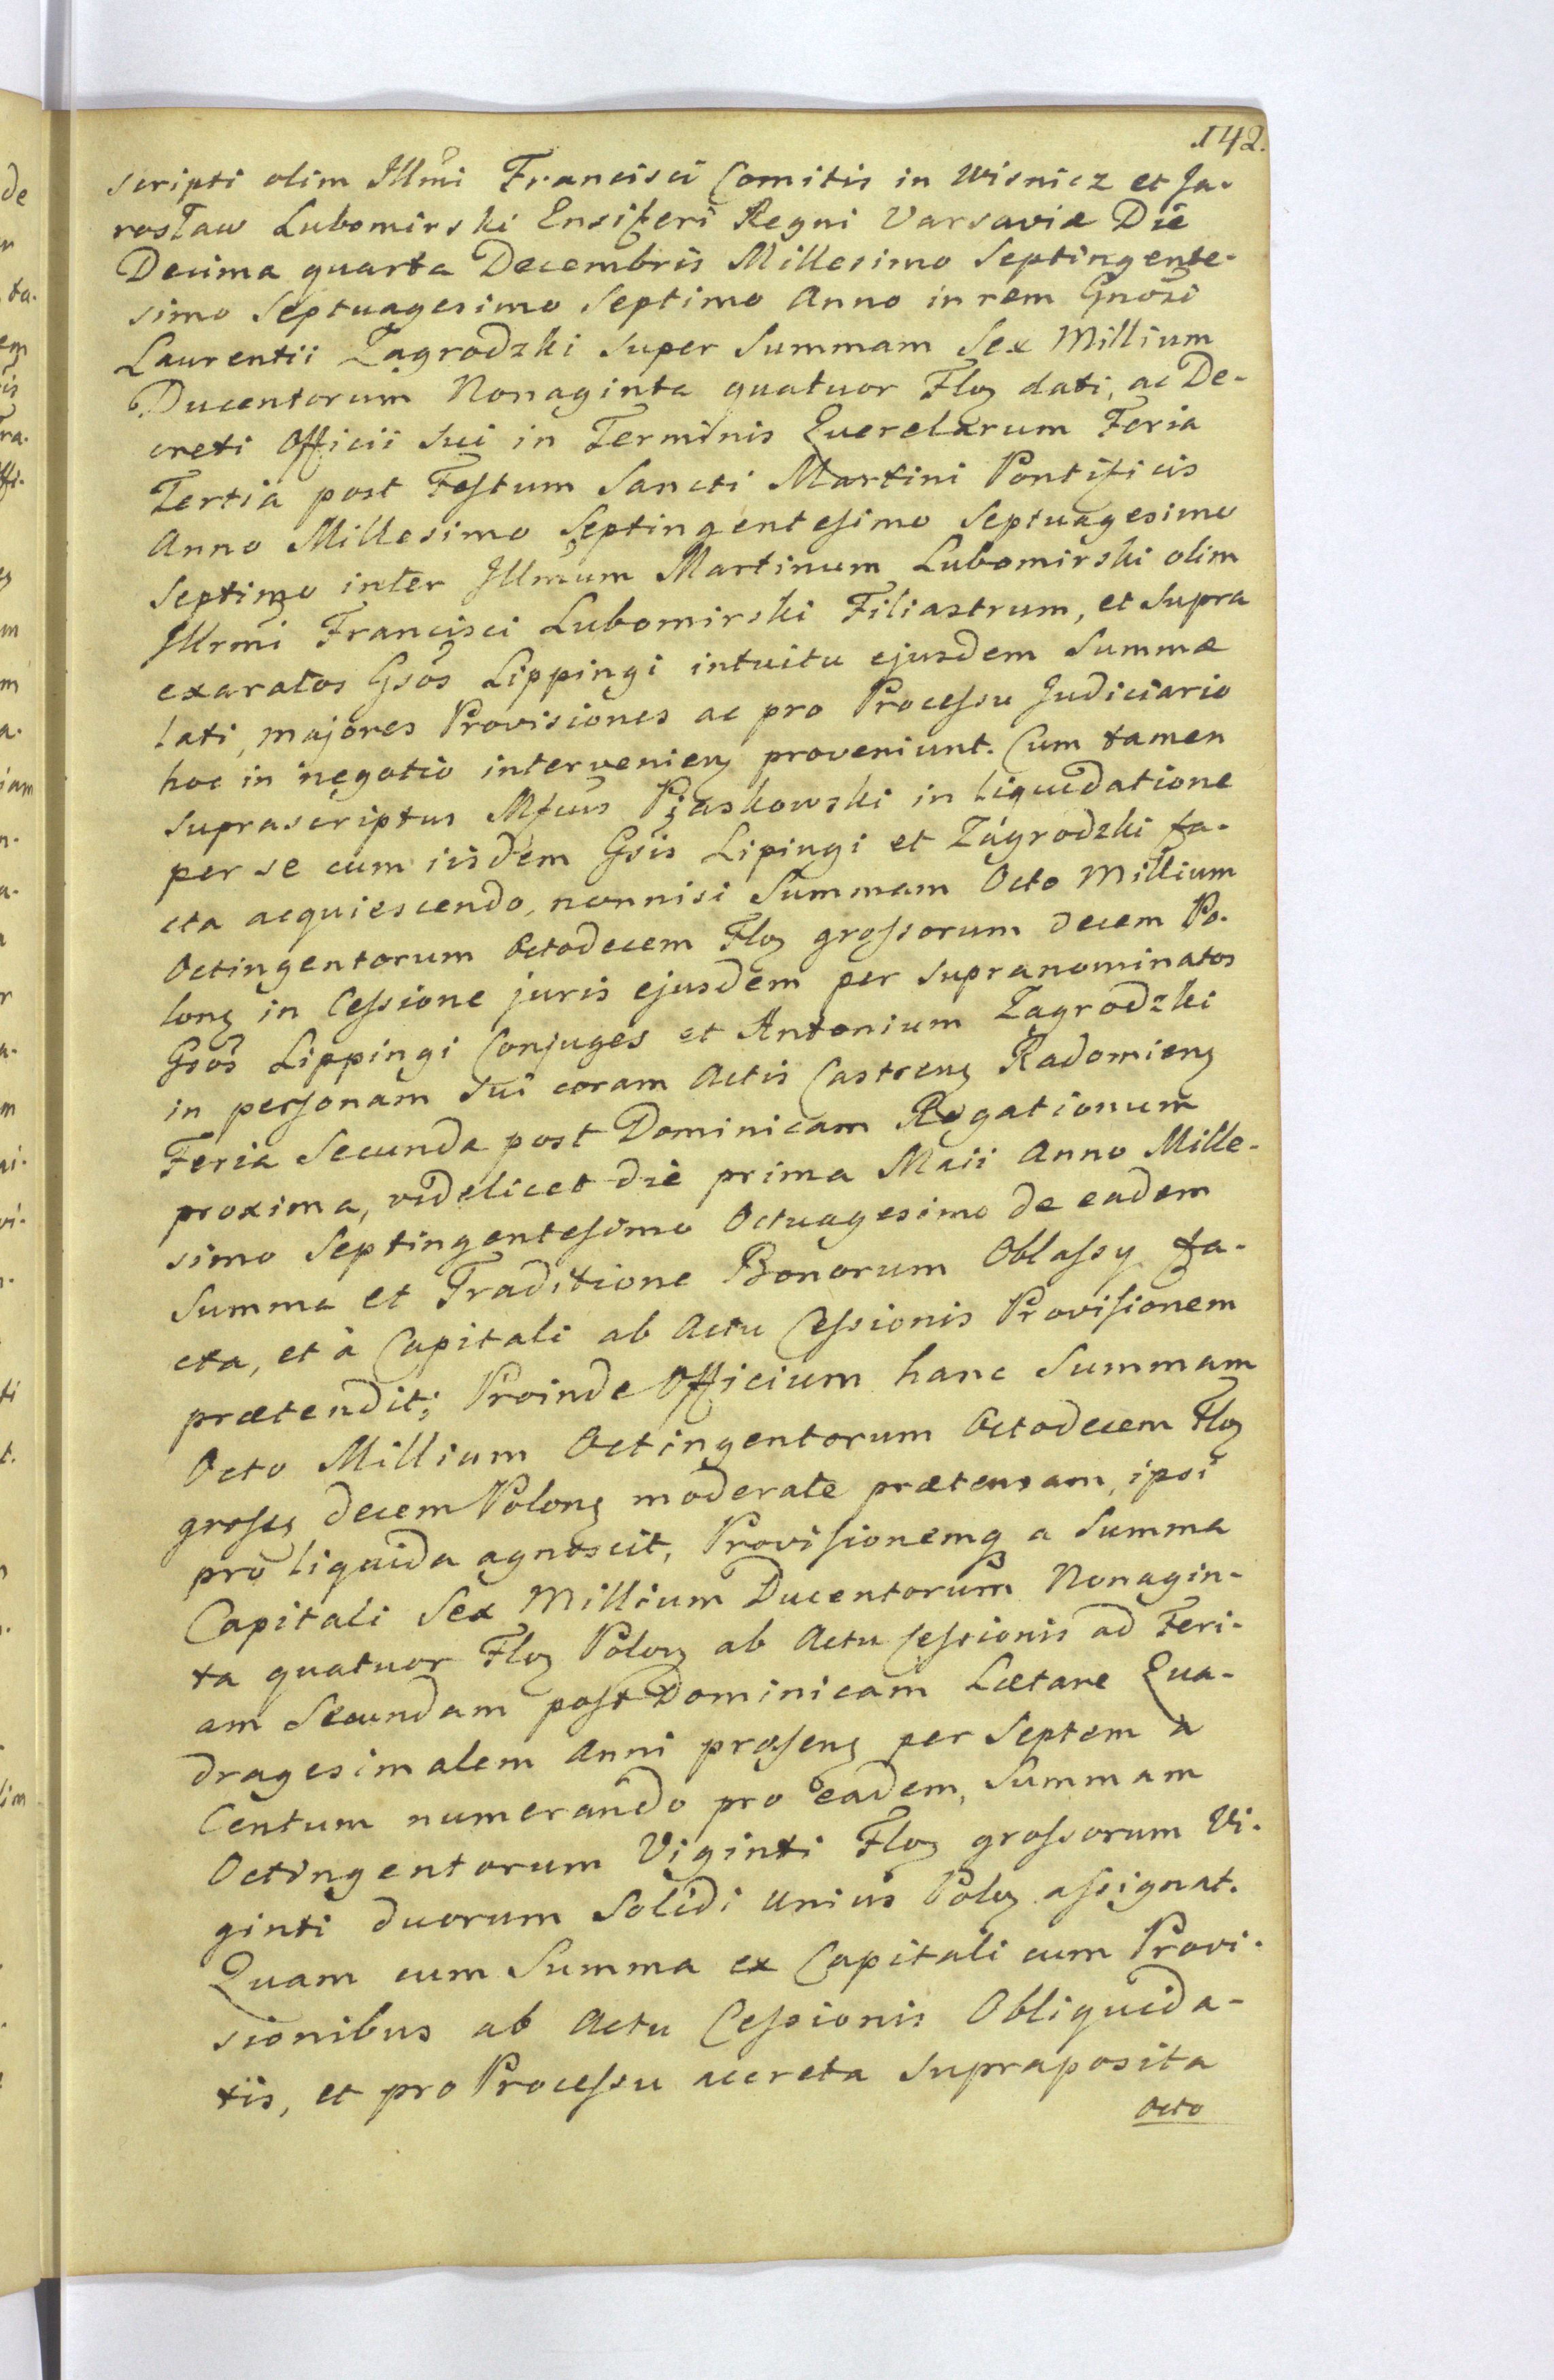 142.
scripti olim Illmi Francisci Comitis in Wisnicz et Ja-
rosław Lubomirski Ensiferi Regni Varsaviæ Die
Decima quarta Decembris Millesimo Septingente-
simo Septuagesimo Septimo Anno in rem Gnosi
Laurentii Zagrodzki super Summam Sex Millium
Ducentorum Nonaginta quatuor Floz dati, ac De-
creti Officii Sui in Terminis Querelarum Feria
Tertia post Festum Sancti Martini Pontificis
Anno Millesimo Septingentesimo Septuagesimo
Septimo inter Illmum Martinum Lubomirski olim
Illrmi Francisci Lubomirski Filiastrum, et Supra
exaratos Gsos Lippingi intuitu ejusdem Summæ
lati, majores Provisiones ac pro Processu Judiciario
hoc in negotio intervenienz proveniunt. Cum tamen
suprascriptus Mfcus Piaskowski in liquidatione
per se cum iisdem Gsis Lipingi et Zagrodzki fa-
cta acquiescendo, nonnisi Summam Octo Millium
Octingentorum Octodecem Floz grossorum decem Po-
lonz in Cessione juris ejusdem per supranominatos
Gsos Lippingi Conjuges et Antonium Zagrodzki
in personam sui coram Actis Castrenz Radomienz
Feria Secunda post Dominicam Rogationum
proxima, videlicet die prima Maii Anno Mille-
simo Septingentesimo Octuagesimo de eadem
Summa et Traditione Bonorum Oblassy fa-
cta, et à Capitali ab Actu Cessionis Provisionem
prætendit; Proinde Officium hanc Summam
Octo Millium Octingentorum Octodecem Floz
grossz decem Polonz moderate prætensam, ipsi
pro liquida agnoscit, Provisionemq a Summa
Capitali Sex Millium Ducentorum Nonagin-
ta quatuor Floz Polonz ab Actu Cessionis ad Feri-
am Secundam post Dominicam Lætare Qua-
dragesimalem Anni præsenz per Septem à
Centum numerando pro eadem, Summam
Octingentorum Viginti Floz grossorum Vi-
ginti duorum Solidi unius Poloz assignat.
Quam cum Summa ex Capitali cum Provi-
sionibus ab Actu Cessionis Obliquida-
tis, et pro Processu accreta supraposita
Octo